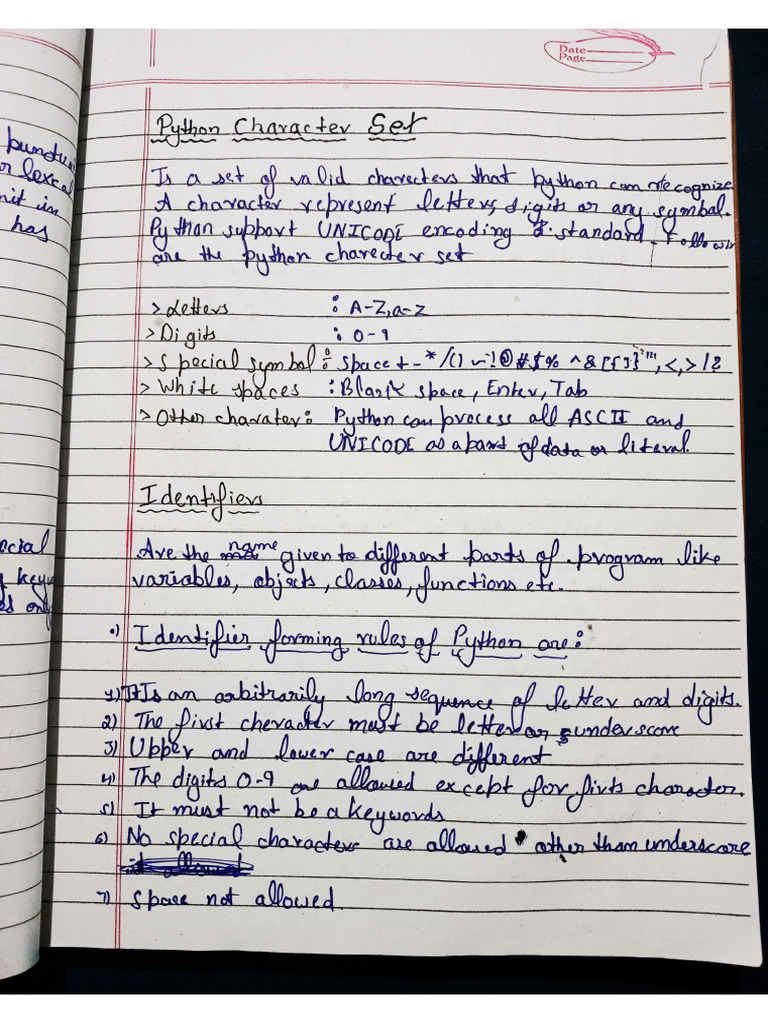 Date
Page
Python Character Set
Is a set of valid charecters that python can recognize.
A character represent letters, digits or any symbal.
Python support UNICODE encoding standard. Followin
are the python charecter set
> Letters : A-Z, a-z
> Digits : 0-9
> Special symbol : space + - * / ( ) ~ ! @ # $ % ^ & [ { ] } ''"", <, > / ?
> White spaces : Blank space, Enter, Tab
> Other charater : Python can process all ASCII and
UNICODE as a part of data or literal.
Identifiers
Are the name given to different parts of program like
variables, objects, classes, functions etc.
Identifier forming rules of Python are :
1) It Is an arbitrarily long sequence of letter and digits.
2) The first cheracter must be letter or underscore
3) Upper and lower case are different
4) The digits 0-9 are allowed except for firts character.
5) It must not be a keywords
6) No special characters are allowed other than underscore
it allowed
7) space not allowed.
punctu
or lexcal
nit in
has
ecial
keyw
ed only